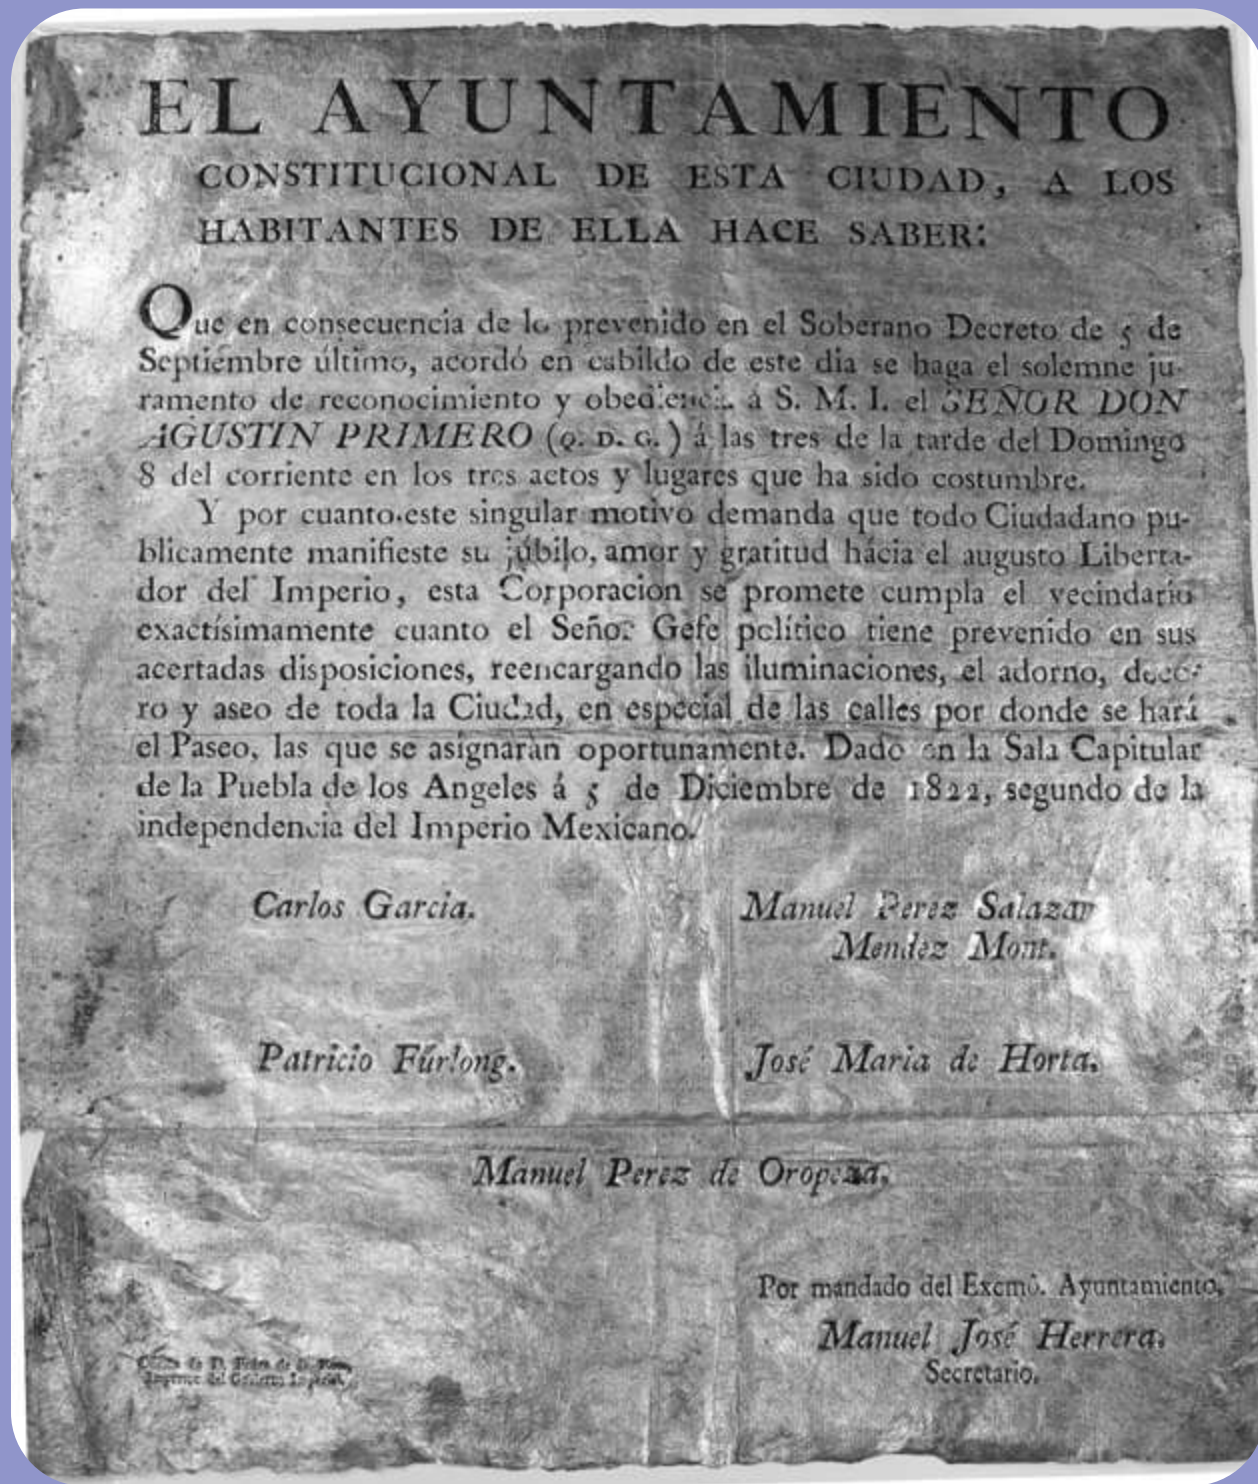 EL AYUNTAMIENTO
CONSTITUCIONAL DE ESTA CIUDAD, A LOS
HABITANTES DE ELLA HACE SABER:
Que en consecuencia de lo prevenido en el Soberano Decreto de 5 de
Septiembre último, acordó en cabildo de este dia se haga el solemne ju-
ramento de reconocimiento y obediencia á S. M. I. el SEÑOR DON
AGUSTIN PRIMERO (Q. D. G.) á las tres de la tarde del Domingo
8 del corriente en los tres actos y lugares que ha sido costumbre.
Y por cuanto este singular motivo demanda que todo Ciudadano pu-
blicamente manifieste su júbilo, amor y gratitud hácia el augusto Liberta-
dor del Imperio, esta Corporacion se promete cumpla el vecindario
exactísimamente cuanto el Señor Gefe político tiene prevenido en sus
acertadas disposiciones, reencargando las iluminaciones, el adorno, deco-
ro y aseo de toda la Ciudad, en especial de las calles por donde se hará
el Paseo, las que se asignarán oportunamente. Dado en la Sala Capitular
de la Puebla de los Angeles á 5 de Diciembre de 1822, segundo de la
independencia del Imperio Mexicano.
Carlos Garcia.
Manuel Perez Salazar
Mendez Mont.
Patricio Fúrlong.
José Maria de Horta.
Manuel Perez de Oropeza.
Por mandado del Excmô. Ayuntamiento,
Manuel José Herrera.
Secretario.
de D. Pedro de la
del Gobierno Imperial